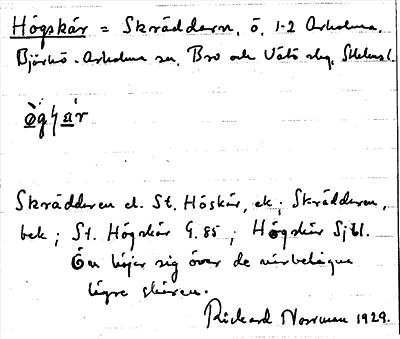 Högskär = Skräddarn, ö, 1-2 Arholma,
Björkö-Arholma sn, Bro och Vätö skg, Sthlms l.
Skrädderen el. St. Höskär, ek; Skrädderen,
bek; St. Högskär G. 85; Högskär Sjkl.
Ön höjer sig över de närbelägna
lägre skären.
Rickard Norrman 1929.